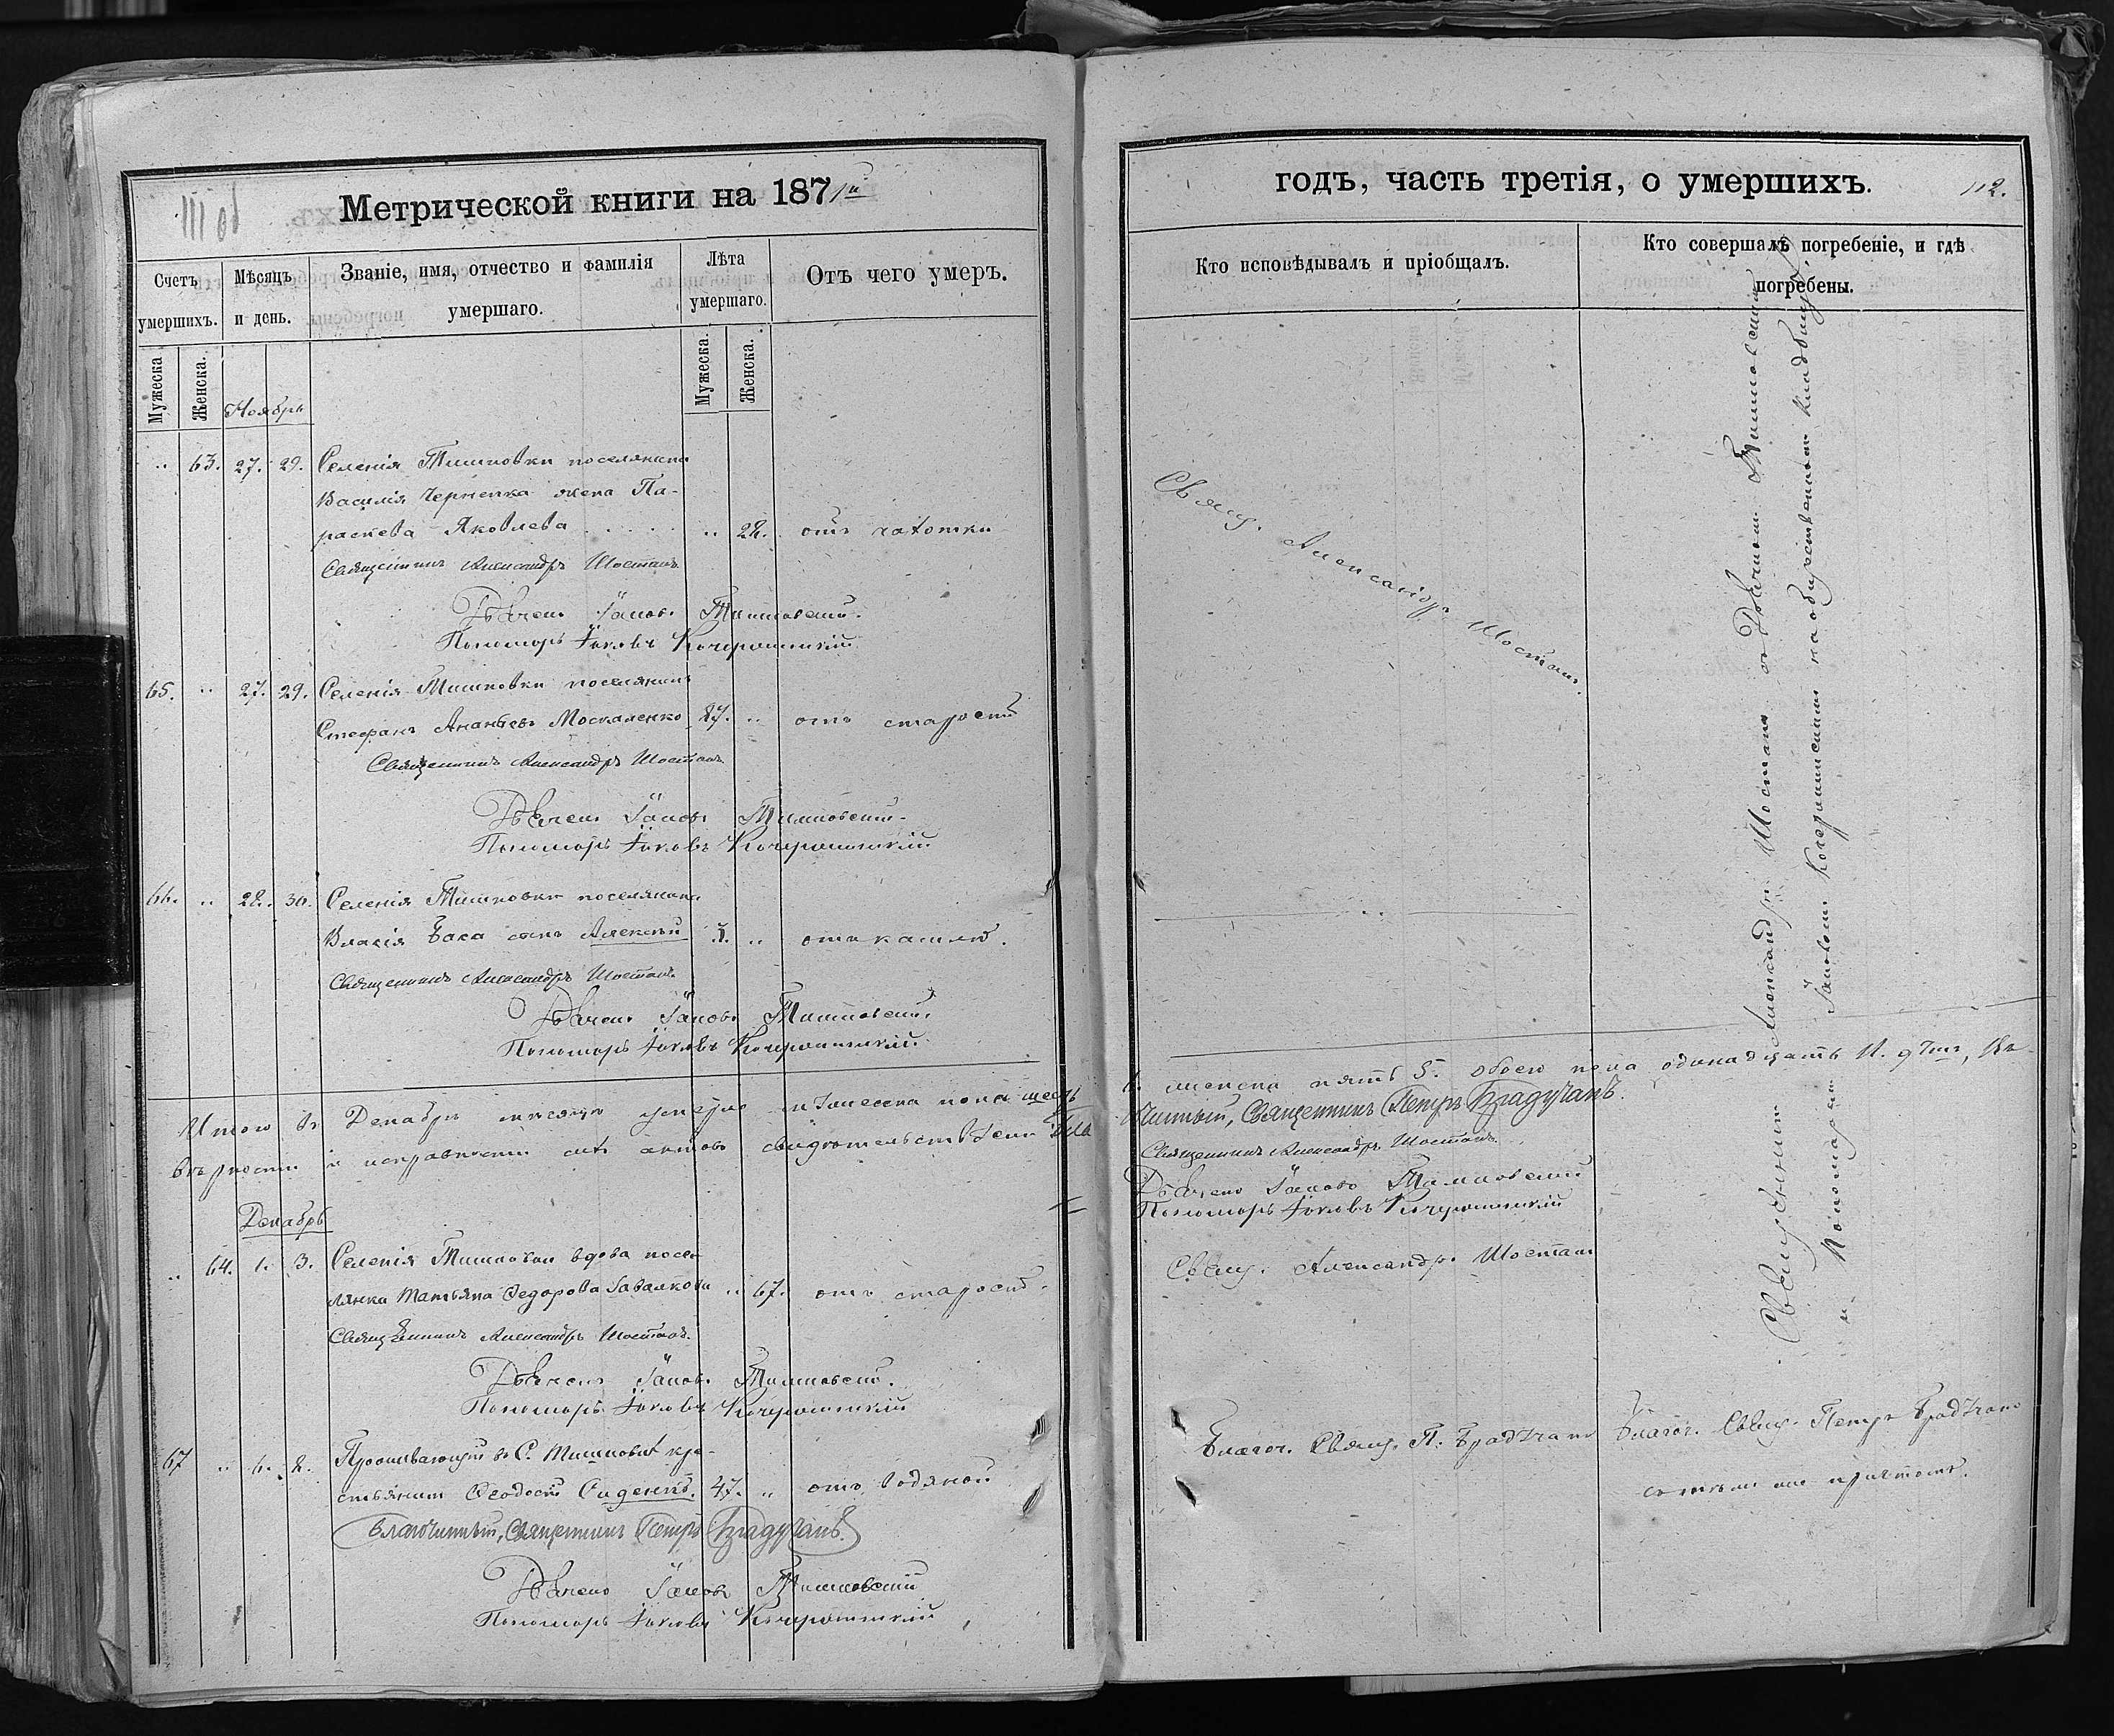 Метрической книги на 1871й
111 об
Счетъ умершихъ.
Мѣсяцъ и день.
Званіе, имя, отчество и фамилія умершаго.
Лѣта умершаго.
Отъ чего умеръ.
Мужеска
Женска.
Мужеска.
Женска.
Ноябрь
" 63. 27. 29. Селенія Тишковки поселянина
Василія Черненка жена Па-
раскева Яковлева " 28. отъ чахотки
Священникъ Александръ Шостакъ
Дьячекъ Іаковъ Тишковскій.
Пономарь Іаковъ
65. " 27. 29. Селенія Тишковки поселянинъ
Стефанъ Ананьевъ Москаленко 87. " отъ старости
Священникъ Александръ Шостакъ
Дьячекъ Іаковъ Тишковскій.
Пономарь Іаковъ
66. " 28. 30. Селенія Тишковки поселянина
Власія Бака сынъ Алексѣй " отъ кашлю.
Священникъ Александръ Шостакъ
Дьячекъ Іаковъ Тишковскій.
Пономарь Іаковъ
Итого въ Декабрѣ мѣсяцѣ умерло мужеска пола шесть
вѣрности и исправности сихъ актовъ свидѣтельствуемъ Бла
Декабрь
" 64. 1. 3. Селенія Тишковки вдова посе-
лянка Татьяна Федорова " 67. отъ старости.
Священникъ Александръ Шостакъ.
Дьячекъ Іаковъ Тишковскій.
Пономарь Іаковъ
67 " 6. 8. Проживающій въ С. Тишковкѣ кре-
стьянинъ Феодосій 47. " отъ водяной
Благочинный, Священникъ Петръ Брадучанъ.
Дьячекъ Іаковъ Тишковскій
Пономарь Іаковъ
годъ, часть третія, о умершихъ.
112.
Кто исповѣдывалъ и пріобщалъ.
Кто совершалъ погребеніе, и гдѣ погребены.
Свящ. Александръ Шостакъ.
Священникъ Александръ Шостакъ съ Дьячкомъ Тишковскимъ
и Пономаремъ Іаковомъ на общественномъ кладбищѣ
6. женска пять 5. обоего пола одинадцать 11. Въ
чинный, Священникъ Петръ Брадучанъ.
Священникъ Александръ Шостакъ.
Дьячекъ Іаковъ Тишковскій
Пономарь Іаковъ
Свящ. Александръ Шостакъ
Благоч. Свящ. П. Брадучанъ
Благоч. Свящ. Петръ Брадучанъ
съ тѣмъ же причтомъ.